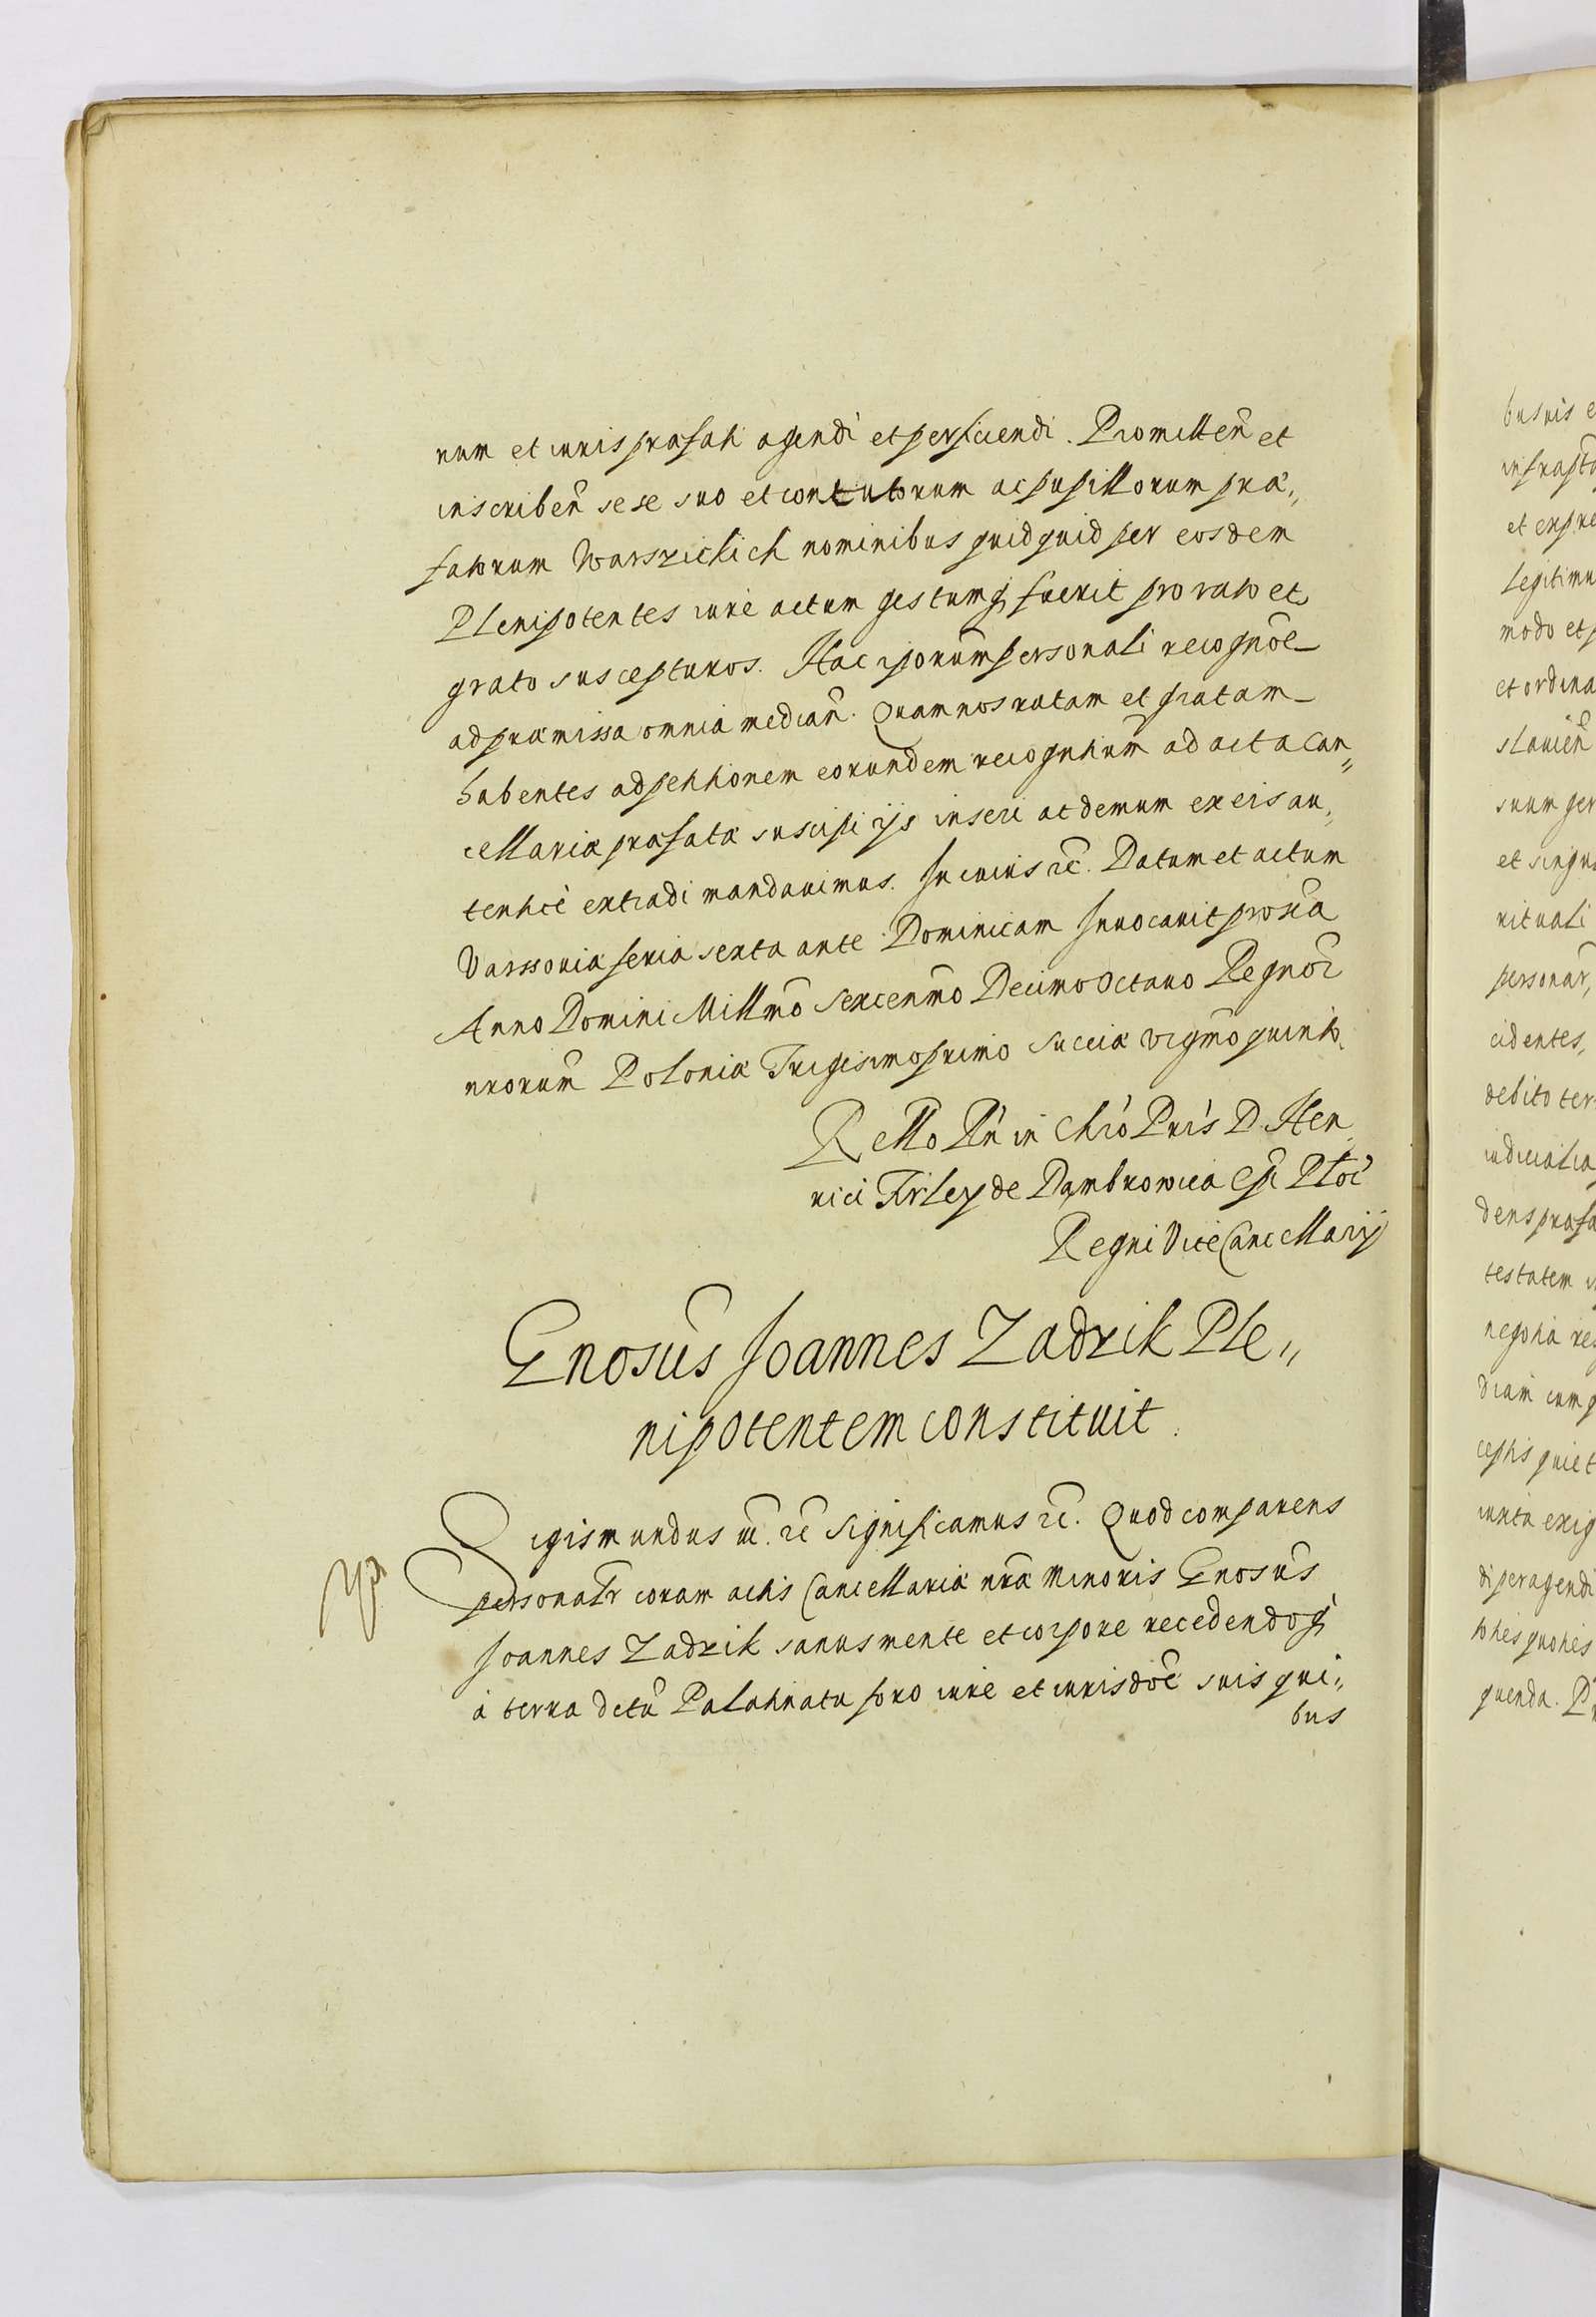 rum et iuris præfati agendi et perficiendi. Promitteñ et
inscribeñ sese suo et contutorum ac pupillorum præ„
fatorum Warszickich nominibus quidquid per eosdem
Plenipotentes iure actum gestumq fuerit pro rato et
grato suscepturos. Hac ipsorum̃ personali recognõe
ad præmissa omnia mediañ. Quam nos ratam et gratam
habentes ad petitionem eorundem recognitum̃ ad acta Can„
cellariæ præfatæ suscipi ijs inseri ac demum ex eis au„
tenticè extradi mandauimus. In cuius rc̃. Datum et actum
Varssouiæ feria sexta ante Dominicam Inuocauit proxĩa
Anno Domini Millm̃o Sexcenm̃o Decimo Octauo Regnor̃
nrorum̃ Poloniæ Trigesimo primo Sueciæ vigm̃o quinto.
Rello Rñ in Chr̃o Pris D. Hen„
rici Firley de Dambrowica Epi Ploc̃
Regni Vice Cancellarij
Gnosus̃ Joannes Zadzik Ple„
nipotentem constituit.
Sigismundus rc̃. rc̃ Significamus rc̃. Quod comparens
personatr̃ coram actis Cancellariæ nrã Minoris Gnosus̃
Joannes Zadzik sanus mente et corpore recedendoq
à terra dctũ Palatinatu foro iurè et iurisdõe suis qui„
bus
busuis e
infrapta
et expre
Legitimu
modo et p
et ordina
slauieñ
suum gen
et singu
rituali
personar,
cidentes,
debito ter
iudicialia
dens præfa
testatem
negotia re
diam cum
ceptis quiet
iuxta exig
di peragendi
toties quoties
quenda. P